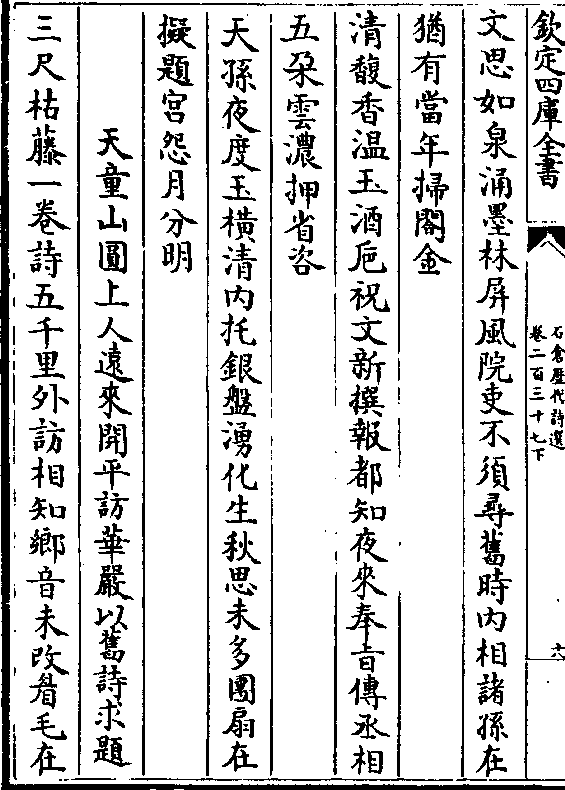 欽定四庫全書
石倉歷代詩選
卷二百三十七下
六
文思如泉涌墨林屏風院吏不須尋舊時内相諸孫在
猶有當年掃閣金
清馥香温玉酒巵祝文新撰報都知夜來奉旨傳丞相
五朶雲濃押省咨
天孫夜度玉橫清内托銀盤湧化生秋思未多團扇在
擬題宫怨月分明
天童山圓上人遠來開平訪華嚴以舊詩求題
三尺枯藤一卷詩五千里外訪相知鄉音未改眉毛在